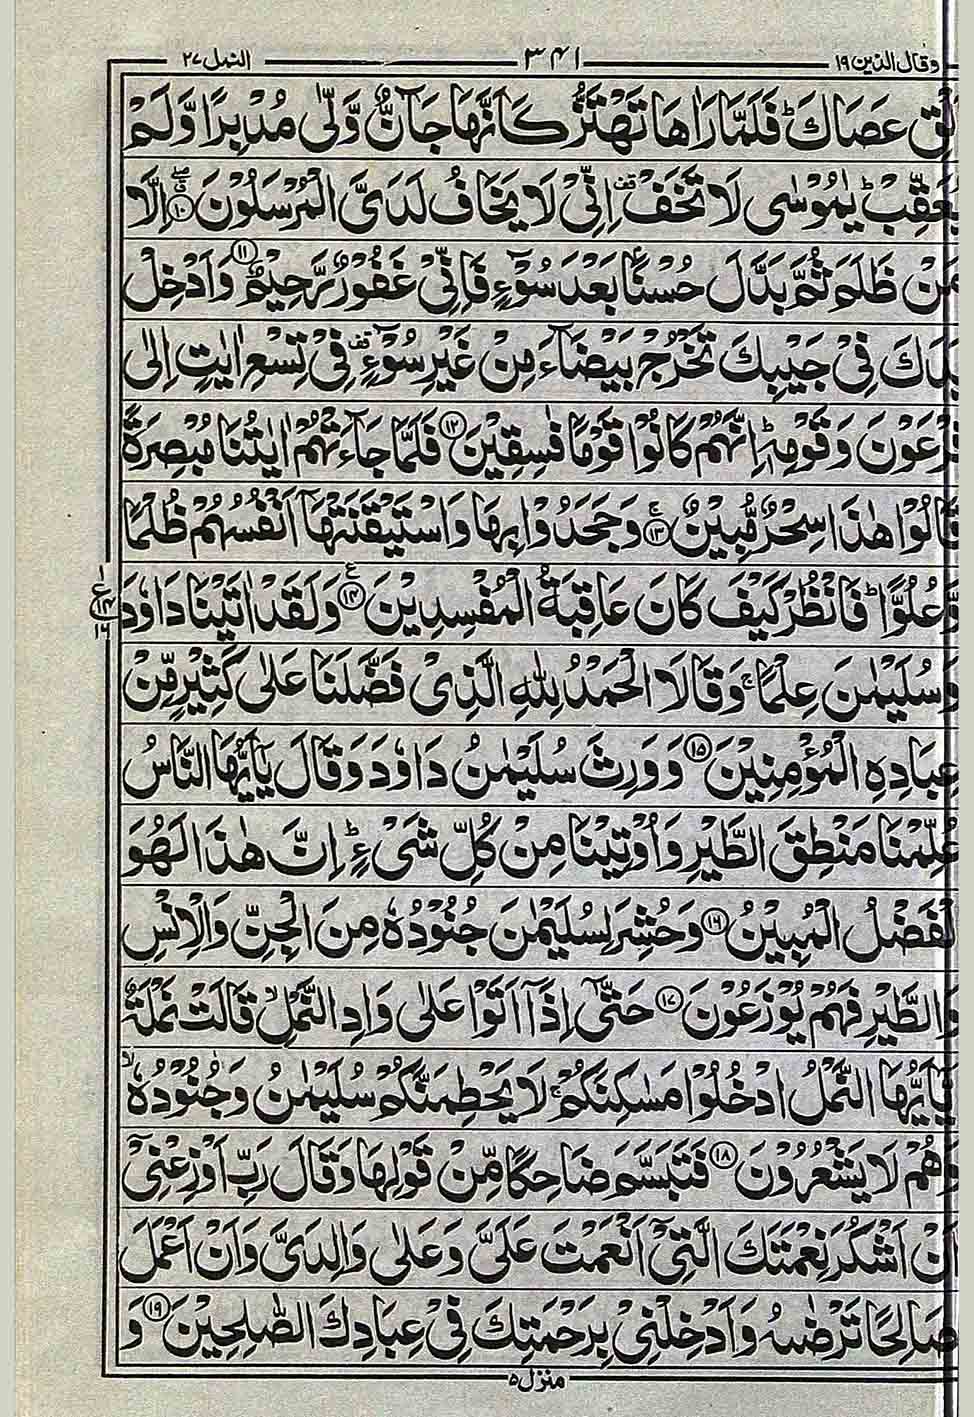 وقال الذين ١٩ ٣٤١ النمل ٢٧
اَلْقِ عَصَاكَ ؕ فَلَمَّا رَاٰهَا تَهْتَزُّ كَاَنَّهَا جَآنٌّ وَّلّٰى مُدْبِرًا وَّلَمْ
يُعَقِّبْ ؕ يٰمُوْسٰى لَا تَخَفْ قف اِنِّیْ لَا يَخَافُ لَدَیَّ الْمُرْسَلُوْنَ ۝١٠ اِلَّا
مَنْ ظَلَمَ ثُمَّ بَدَّلَ حُسْنًۢا بَعْدَ سُوْٓءٍ فَاِنِّیْ غَفُوْرٌ رَّحِيْمٌ ۝١١ وَاَدْخِلْ
يَدَكَ فِیْ جَيْبِكَ تَخْرُجْ بَيْضَآءَ مِنْ غَيْرِ سُوْٓءٍ قف فِیْ تِسْعِ اٰيٰتٍ اِلٰى
فِرْعَوْنَ وَقَوْمِهٖ ؕ اِنَّهُمْ كَانُوْا قَوْمًا فٰسِقِيْنَ ۝١٢ فَلَمَّا جَآءَتْهُمْ اٰيٰتُنَا مُبْصِرَةً
قَالُوْا هٰذَا سِحْرٌ مُّبِيْنٌ ۝١٣ ۚ وَجَحَدُوْا بِهَا وَاسْتَيْقَنَتْهَاۤ اَنْفُسُهُمْ ظُلْمًا
وَّعُلُوًّا ؕ فَانْظُرْ كَيْفَ كَانَ عَاقِبَةُ الْمُفْسِدِيْنَ ۝١٤ ع وَلَقَدْ اٰتَيْنَا دَاوٗدَ
ع ١٤ ١٦
وَسُلَيْمٰنَ عِلْمًا ۚ وَقَالَا الْحَمْدُ لِلّٰهِ الَّذِیْ فَضَّلَنَا عَلٰى كَثِيْرٍ مِّنْ
عِبَادِهِ الْمُؤْمِنِيْنَ ۝١٥ وَوَرِثَ سُلَيْمٰنُ دَاوٗدَ وَقَالَ يٰۤاَيُّهَا النَّاسُ
عُلِّمْنَا مَنْطِقَ الطَّيْرِ وَاُوْتِيْنَا مِنْ كُلِّ شَیْءٍ ؕ اِنَّ هٰذَا لَهُوَ
الْفَضْلُ الْمُبِيْنُ ۝١٦ وَحُشِرَ لِسُلَيْمٰنَ جُنُوْدُهٗ مِنَ الْجِنِّ وَالْاِنْسِ
وَالطَّيْرِ فَهُمْ يُوْزَعُوْنَ ۝١٧ حَتّٰۤى اِذَاۤ اَتَوْا عَلٰى وَادِ النَّمْلِ ۙ قَالَتْ نَمْلَةٌ
يّٰۤاَيُّهَا النَّمْلُ ادْخُلُوْا مَسٰكِنَكُمْ ۚ لَا يَحْطِمَنَّكُمْ سُلَيْمٰنُ وَجُنُوْدُهٗ ۙ
وَهُمْ لَا يَشْعُرُوْنَ ۝١٨ فَتَبَسَّمَ ضَاحِكًا مِّنْ قَوْلِهَا وَقَالَ رَبِّ اَوْزِعْنِیْۤ
اَنْ اَشْكُرَ نِعْمَتَكَ الَّتِیْۤ اَنْعَمْتَ عَلَیَّ وَعَلٰى وَالِدَیَّ وَاَنْ اَعْمَلَ
صَالِحًا تَرْضٰىهُ وَاَدْخِلْنِیْ بِرَحْمَتِكَ فِیْ عِبَادِكَ الصّٰلِحِيْنَ ۝١٩ وَ
منزل ٥